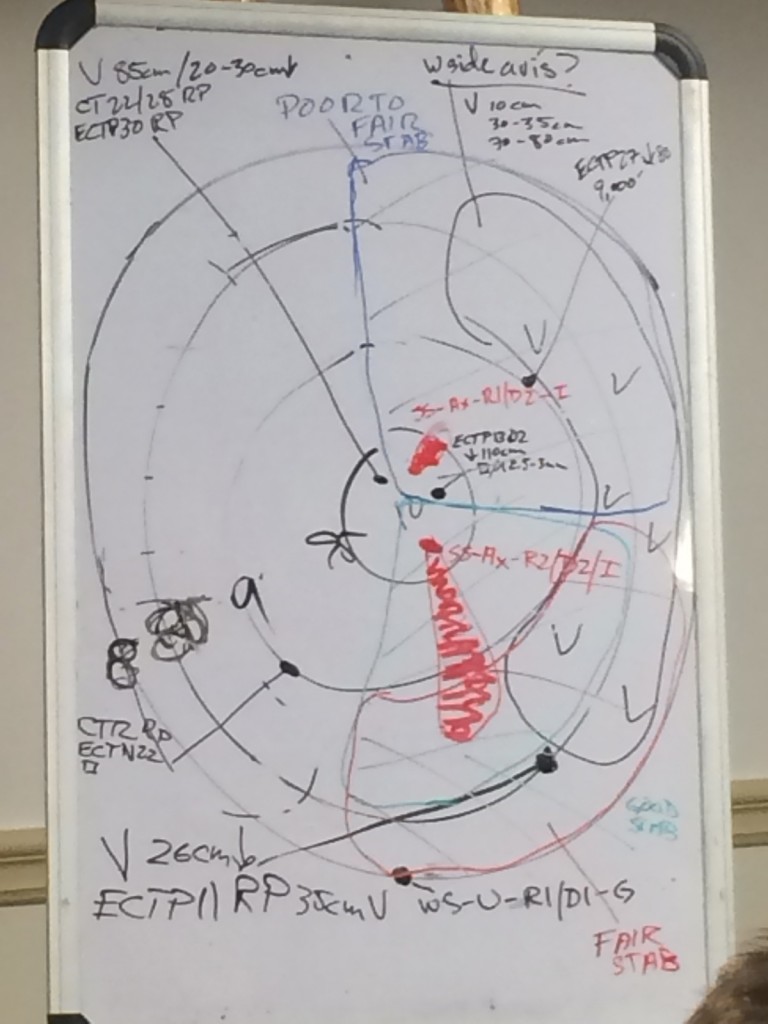 V 85cm/20-30cm↓
CT22/28 RP
ECTP30 RP
POOR TO
FAIR
STAB
Wside avis?
V 10cm
30-35cm
70-80cm
ECTP27↓80
9,000'
SS-Ax-R1/D2-I
ECTP13Q2
↓110cm
2.5-3mm
V
V
V
V
SS-Ax-R2/D2/I
9
8
V
V
CT12 RP
ECTN22
GOOD
STAB
V 26cm↓
ECTP11 RP 35cm V WS-U-R1/D1-G
FAIR
STAB